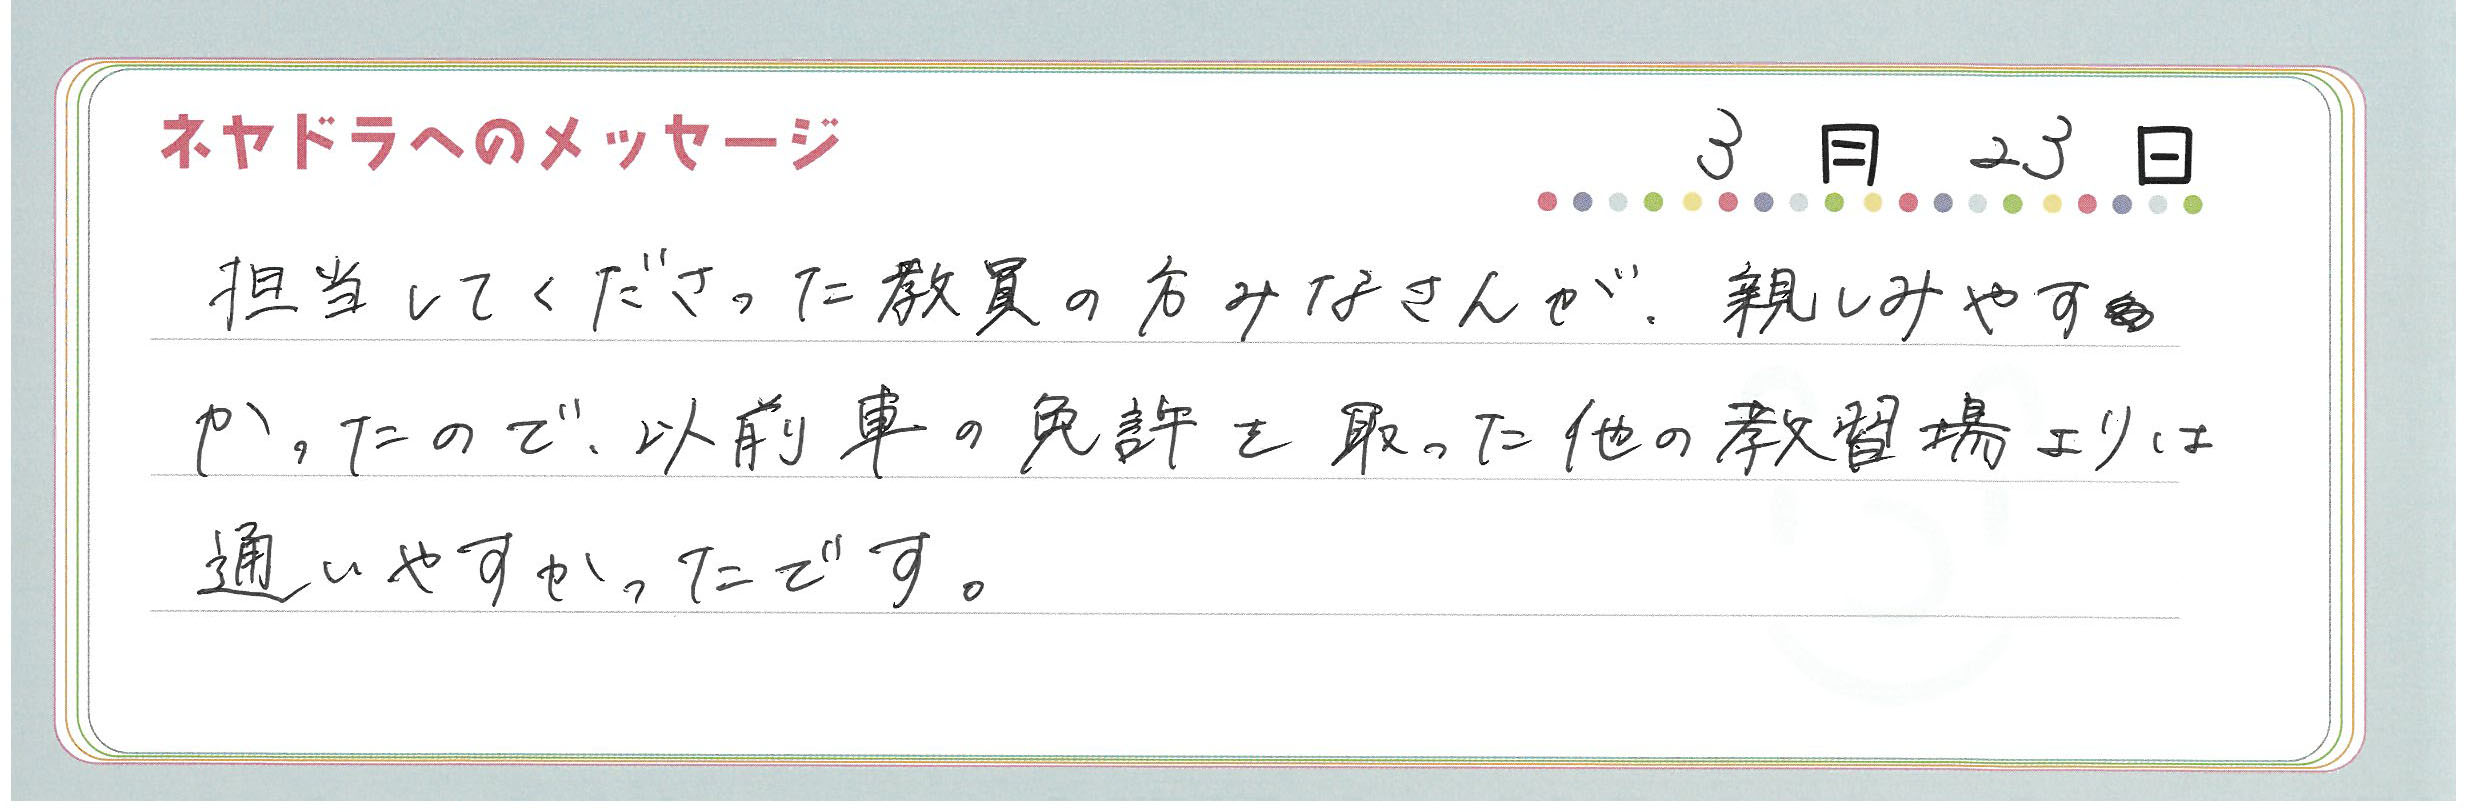 ネヤドラへのメッセージ
3月 23日
担当してくださった教員の方みなさんが、親しみやす
かったので、以前車の免許を取った他の教習場よりは
通いやすかったです。